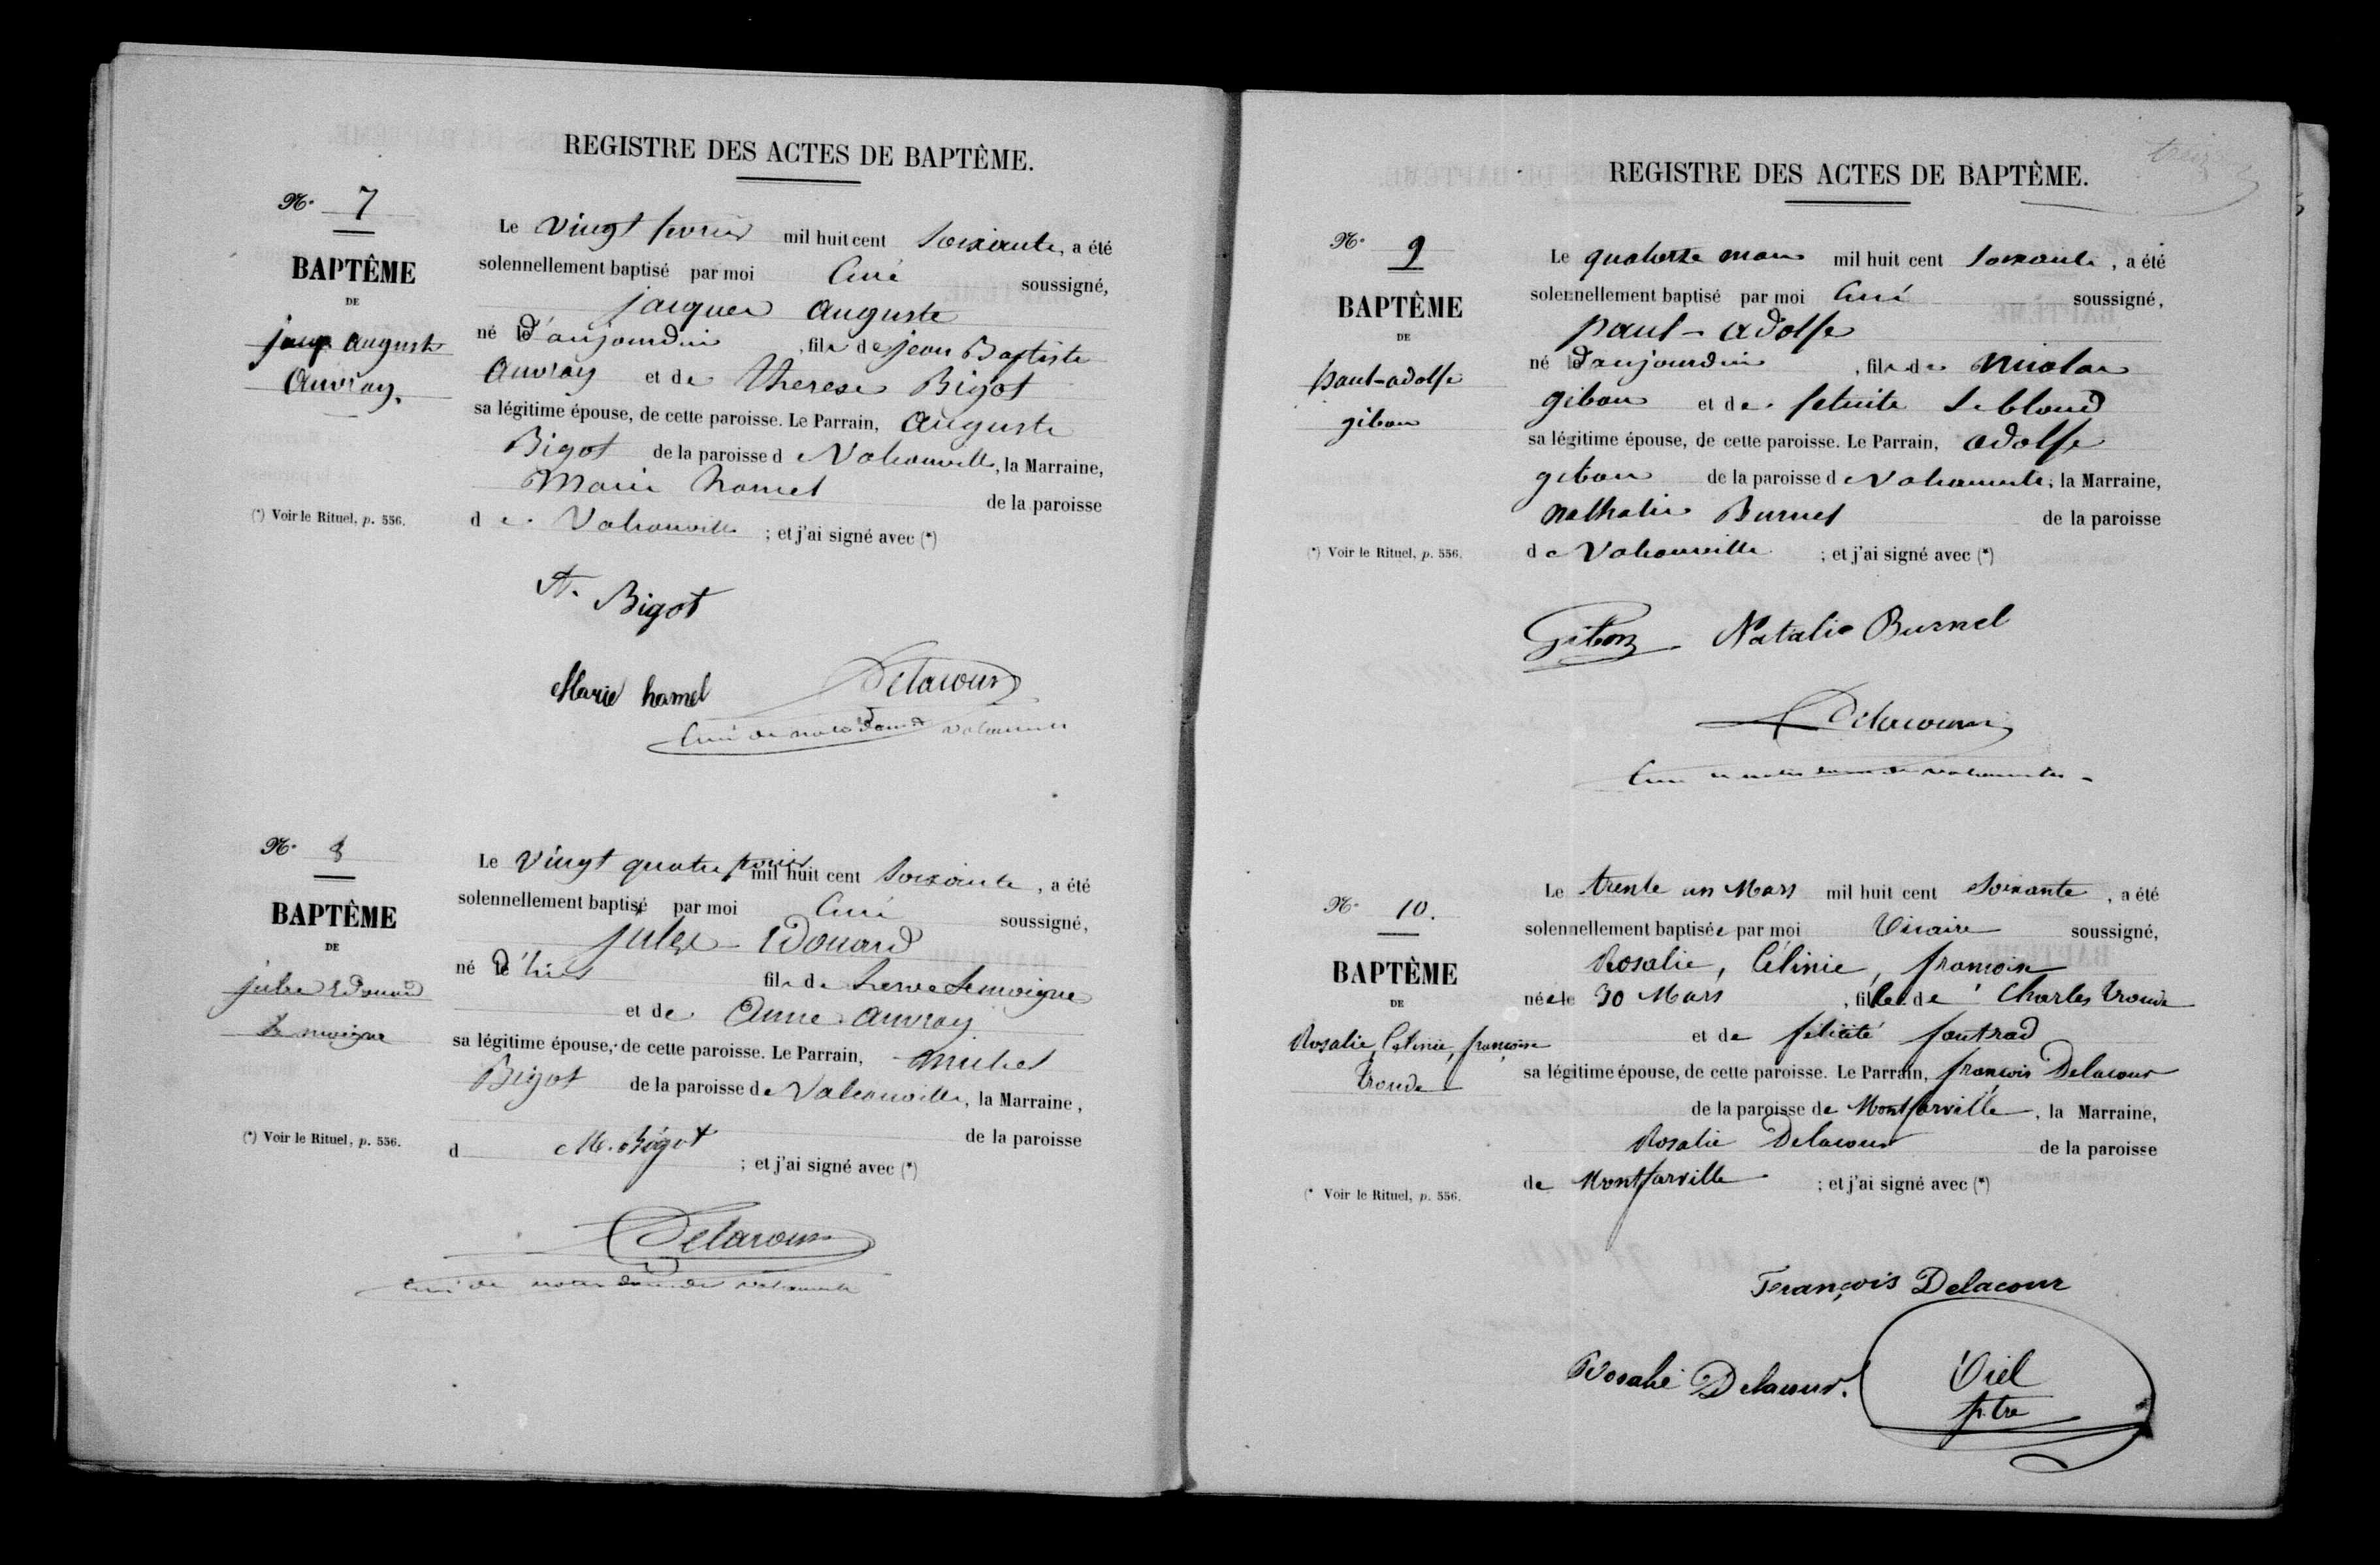 REGISTRE DES ACTES DE BAPTÊME.
N° 7
BAPTÊME
DE
august
Auvray.
(*) Voir le Rituel, p. 556.
Le vingt fevrier mil huit cent soixante, a été
solennellement baptisé par moi Curé soussigné,
jacques auguste
né d'aujourdui, fils de jean Baptiste
Auvray et de therese Bigot
sa légitime épouse, de cette paroisse. Le Parrain, auguste
Bigot de la paroisse de Valcanville, la Marraine,
Marie hamel de la paroisse
de Valcanville ; et j'ai signé avec (*)
A. Bigot
Marie hamel Delacour
Curé de notre dame de valcanville
N° 8
BAPTÊME
DE
jules Edouard
Le moigne
(*) Voir le Rituel, p. 556.
Le vingt quatre fevrier mil huit cent soixante, a été
solennellement baptisé par moi Curé soussigné,
jules Edouard
né d'hier fils de herve Lemoigne
et de Anne Auvray
sa légitime épouse, de cette paroisse. Le Parrain, michel
Bigot de la paroisse de Valcanville, la Marraine,
de la paroisse
d M. Bigot ; et j'ai signé avec (*)
Delacour
Curé de notre dame de valcanville
REGISTRE DES ACTES DE BAPTÊME.
N° 9
BAPTÊME
DE
paul-adolfe
gibon
(*) Voir le Rituel, p. 556.
Le quatorze mars mil huit cent soixante, a été
solennellement baptisé par moi Curé soussigné,
paul-adolfe
né d'aujourdui, fils de nicolas
gibon et de Leblond
sa légitime épouse, de cette paroisse. Le Parrain, adolfe
gibon de la paroisse de Valcanville, la Marraine,
nathalie Burnel de la paroisse
de Valcanville ; et j'ai signé avec (*)
Gibon Natalie Burnel
Delacour
Curé de notre dame de valcanville
N° 10.
BAPTÊME
DE
Rosalie, Célinie, françoise
Troude
(* Voir le Rituel, p. 556.
Le trente un Mars mil huit cent Soixante, a été
solennellement baptisée par moi Vicaire soussigné,
Rosalie, Célinie, françoise
née le 30 Mars, fille de Charles Troude
et de félicité fontrad
sa légitime épouse, de cette paroisse. Le Parrain, françois Delacour
de la paroisse de Montfarville, la Marraine,
Rosalie Delacour de la paroisse
de Montfarville ; et j'ai signé avec (*)
François Delacour
Rosalie Delacour. Viel
ptre